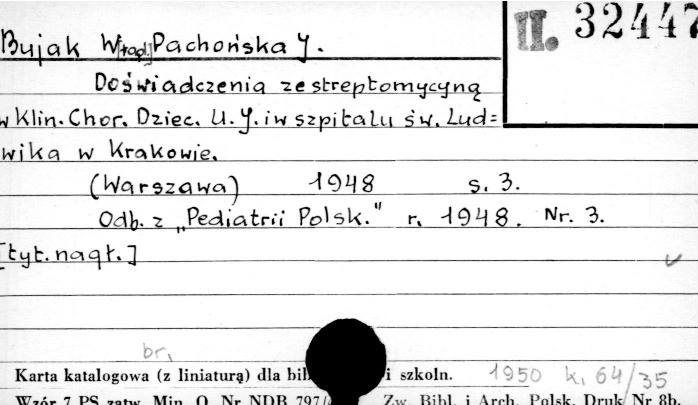 II. 32447
Bujak W[ład.] Pachońska J.
Doświadczenia ze streptomycyną
w Klin. Chor. Dziec. U. J. i w szpitalu św. Lud=
wika w Krakowie.
(Warszawa) 1948 s. 3.
Odb. z „Pediatrii Polsk." r. 1948. Nr. 3.
[tyt. nagł.]
br.
Karta katalogowa (z liniaturą) dla i szkoln. 1950 k. 64/35
Wzór 7 PS zatw. Min. O. Nr NDB 797/ Zw. Bibl. i Arch. Polsk. Druk Nr 8b.